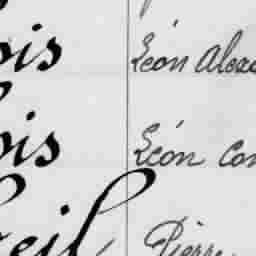 ois Léon Alex
ois Léon Con
eil Pierre